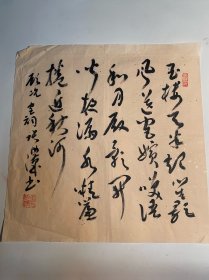 玉楼天半起笙歌
风送宫嫔笑语
和月殿影开
闻夜漏水精帘
捲近秋河
顾况宫词 书